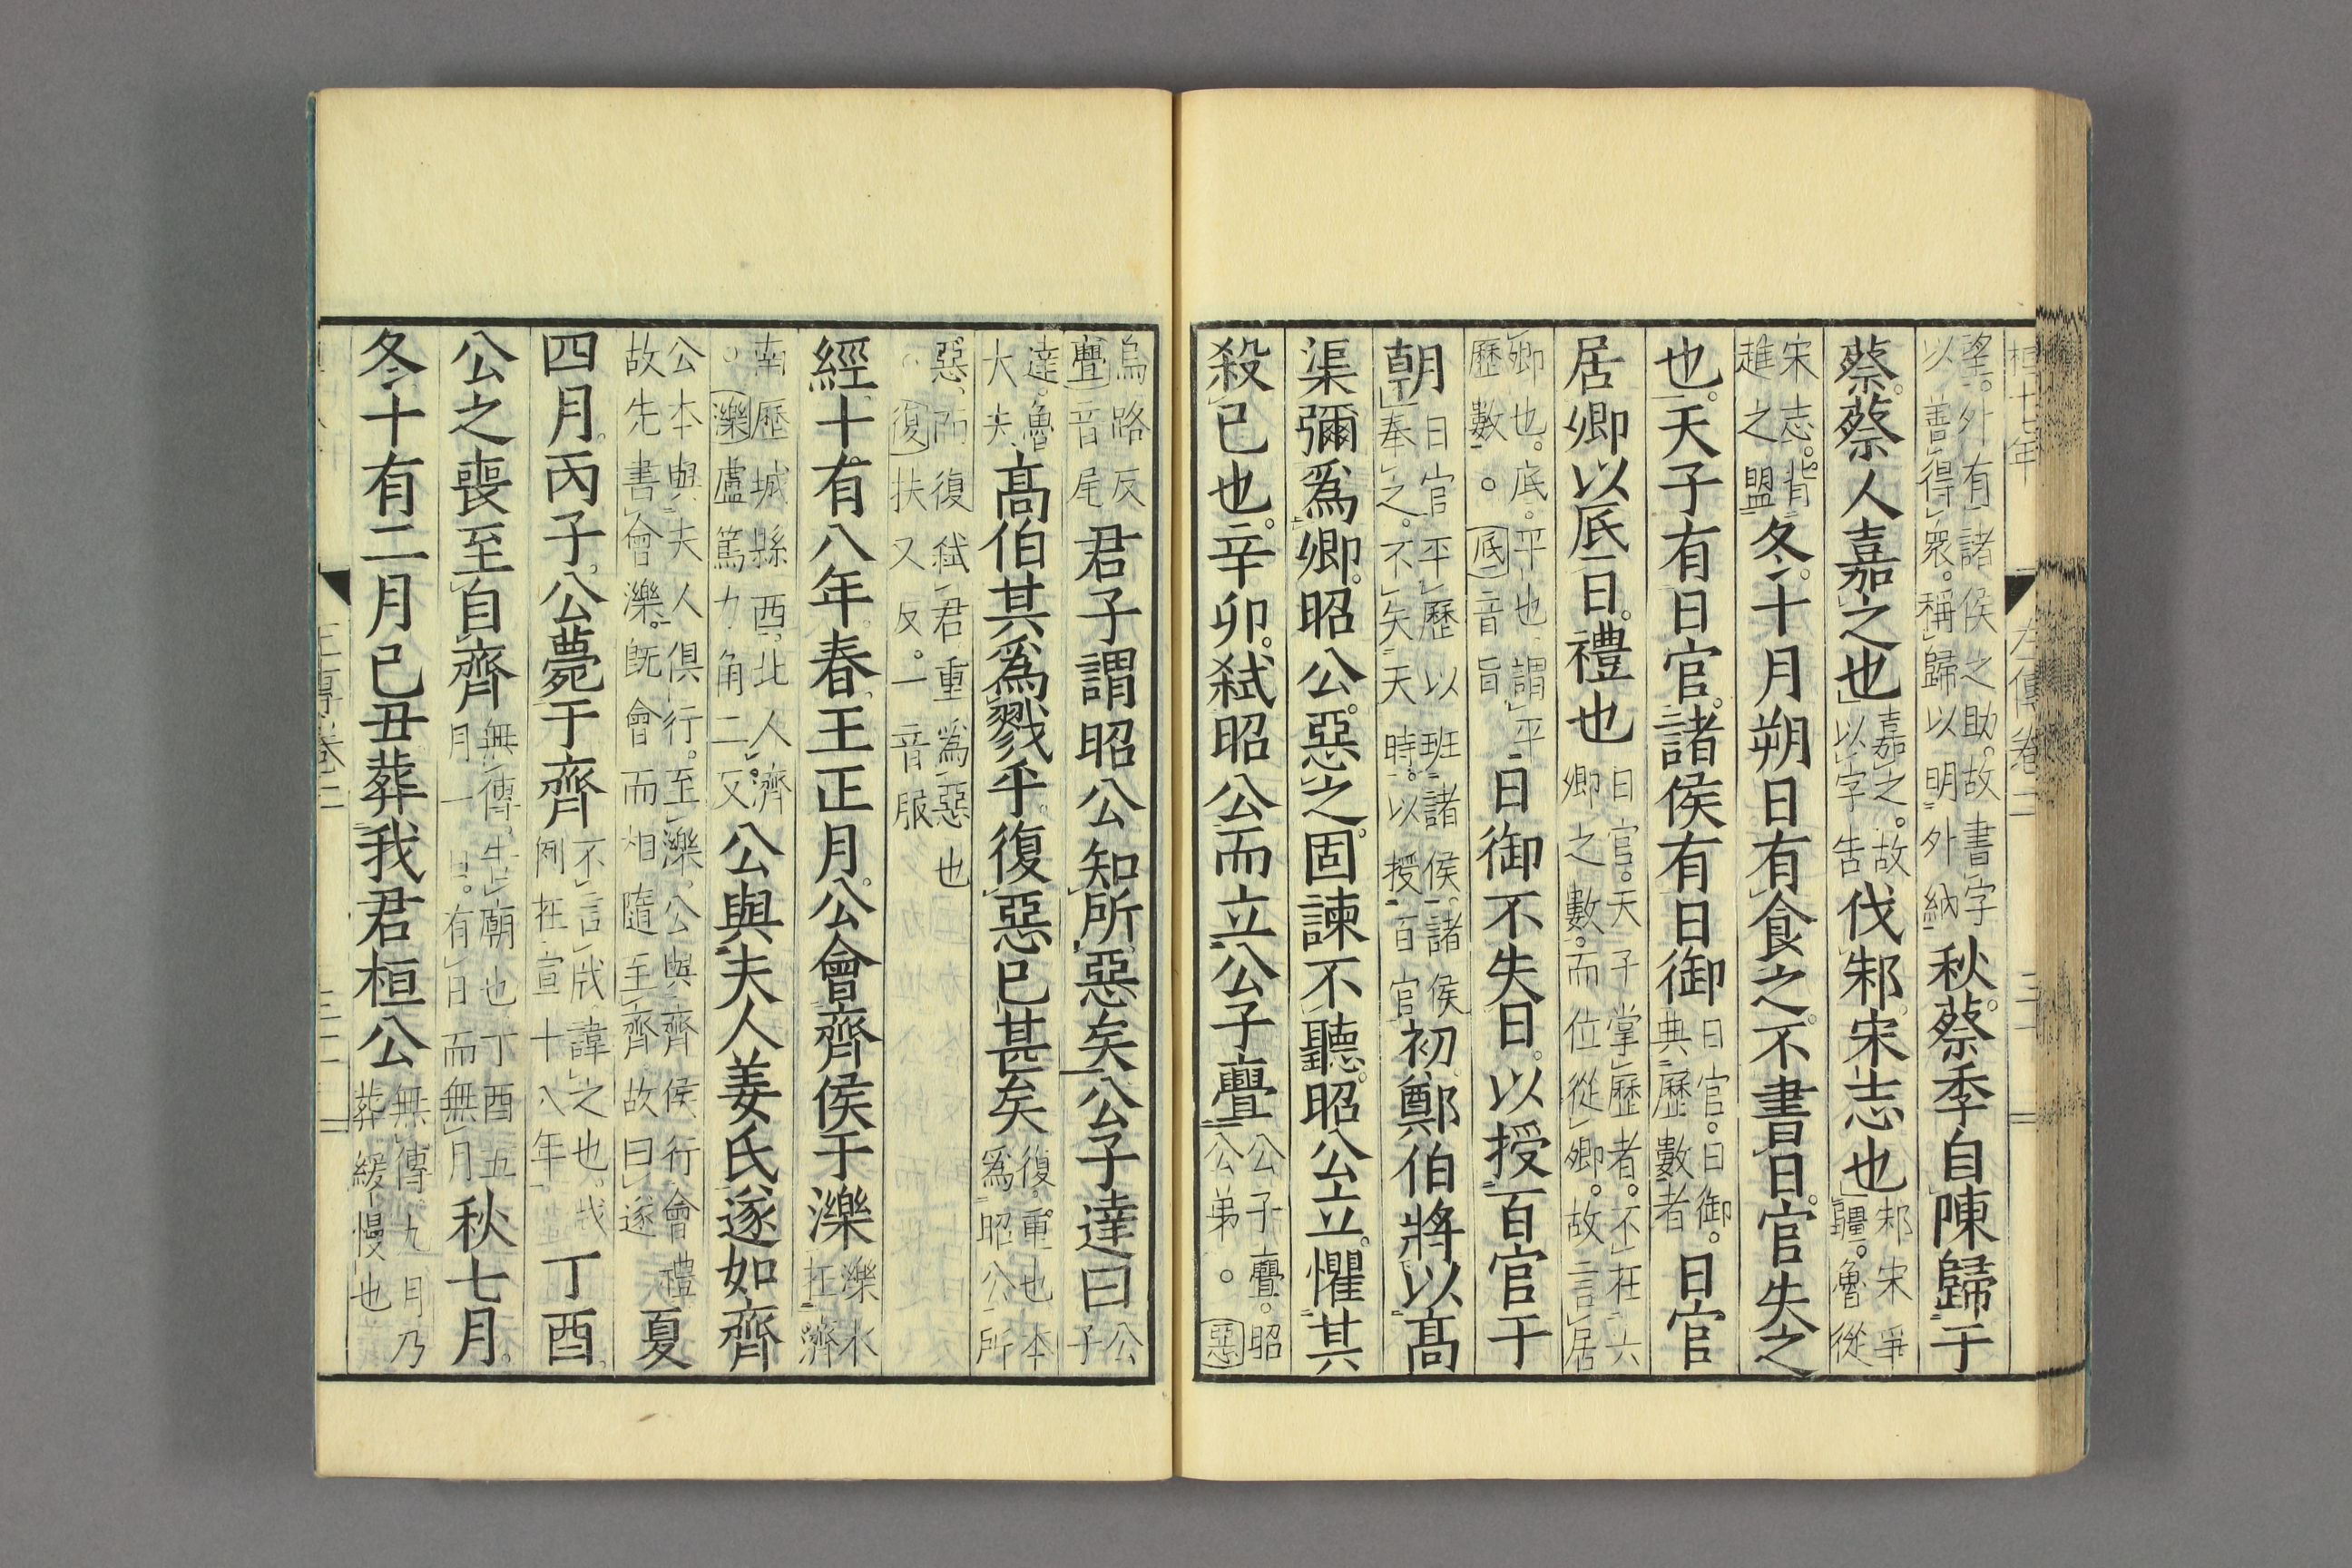 桓十七年 左傳卷二
望。外有諸侯之助。故書字以善得衆。稱歸以明外納秋。蔡季自陳歸于
蔡。蔡人嘉之也嘉之。故以字告伐邾。宋志也邾宋爭疆。魯從
宋志。背趡之盟冬。十月朔日有食之。不書日。官失之
也。天子有日官。諸侯有日御日官。日御。典歷數者日官
居卿以底日。禮也日官。天子掌歷者。不在六卿之數。而位從卿。故言居
卿也。底。平也。謂平歷數。。底音旨日御不失日。以授百官于
朝日官平歷以班諸侯。諸侯奉之。不失天時。以授百官初鄭伯將以高
渠彌爲卿。昭公惡之。固諫不聽。昭公立。懼其
殺已也。辛卯。弑昭公而立公子亹公子亹。昭公弟。。惡
烏路反亹音尾君子謂昭公知所惡矣公子達曰公子
達。魯大夫高伯其爲戮乎。復惡已甚矣復。重也本爲昭公所
惡、而復弑君、重爲惡也。復扶又反。一音服
經。十有八年。春。王正月。公會齊侯于濼濼水在濟
南歷城縣西北人濟。。濼盧篤力角二又公與夫人姜氏遂如齊
公本與夫人俱行。至濼。公與齊侯行會禮故先書會濼。既會而相隨至齊故曰遂夏
四月。丙子。公薨于齊不言戕諱之也。戕例在宣十八年丁酉。
公之喪至自齊無傳。告廟也丁酉五月一日。有日而無月秋七月。
冬十有二月己丑葬我君桓公無傳。九月乃葬緩慢也